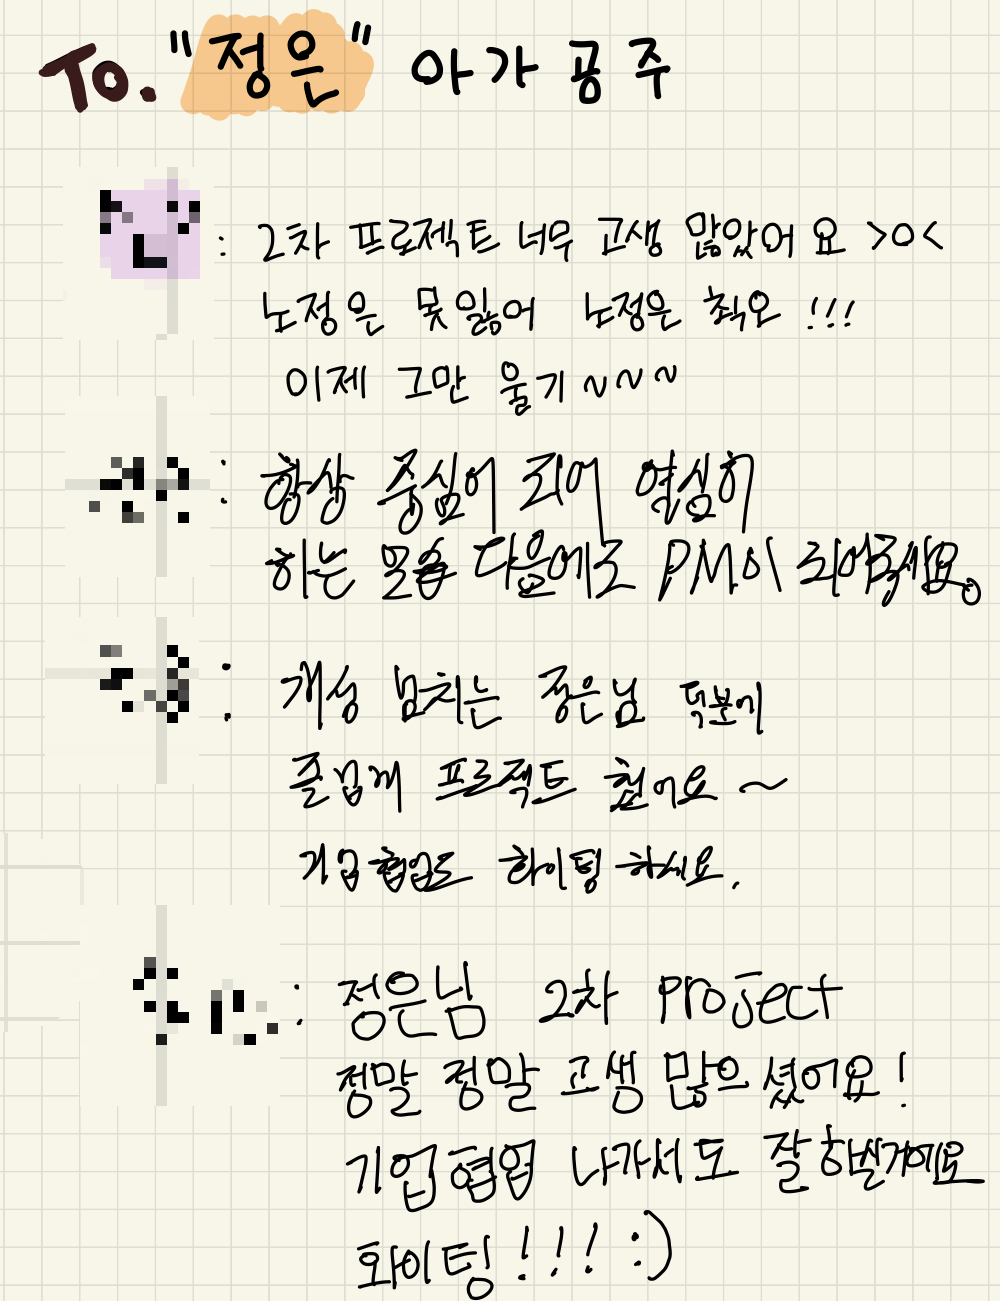 To. "정은" 아가공주
: 2차 프로젝트 너무 고생 많았어요 >o<
노정은 못잃어 노정은 최오 !!!
이제 그만 울기 ~~~
: 항상 중심이 되어 열심히
하는 모습 다음에도 PM이 되어주세요。
: 개성 넘치는 정은님 덕분에
즐겁게 프로젝트 했어요~
기업협업도 화이팅 하세요.
: 정은님 2차 project
정말 정말 고생 많으셨어요!
기업협업 나가서도 잘하실거에요
화이팅!!! :)